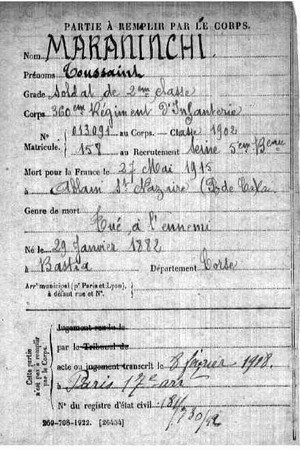 PARTIE À REMPLIR PAR LE CORPS.
Nom MARANINCHI
Prénoms Toussaint
Grade soldat de 2ème classe
Corps 360ème Régiment d'Infanterie
N° 013091 au Corps. — Classe 1902
Matricule. 158 au Recrutement Seine 5ème Beau
Mort pour la France le 27 Mai 1915
à Ablain St Nazaire (P. de Cal
Genre de mort
Tué à l'ennemi
Né le 29 Janvier 1882
à Bastia Département Corse
Arrt municipal (pr Paris et Lyon),
à défaut rue et N°.
Cette partie
n'est pas à remplir
par le Corps.
Jugement rendu le
par le Tribunal de
acte ou jugement transcrit le 8 février 1918.
à Paris 17e arr
N° du registre d'état civil
269-708-1922. [26434]